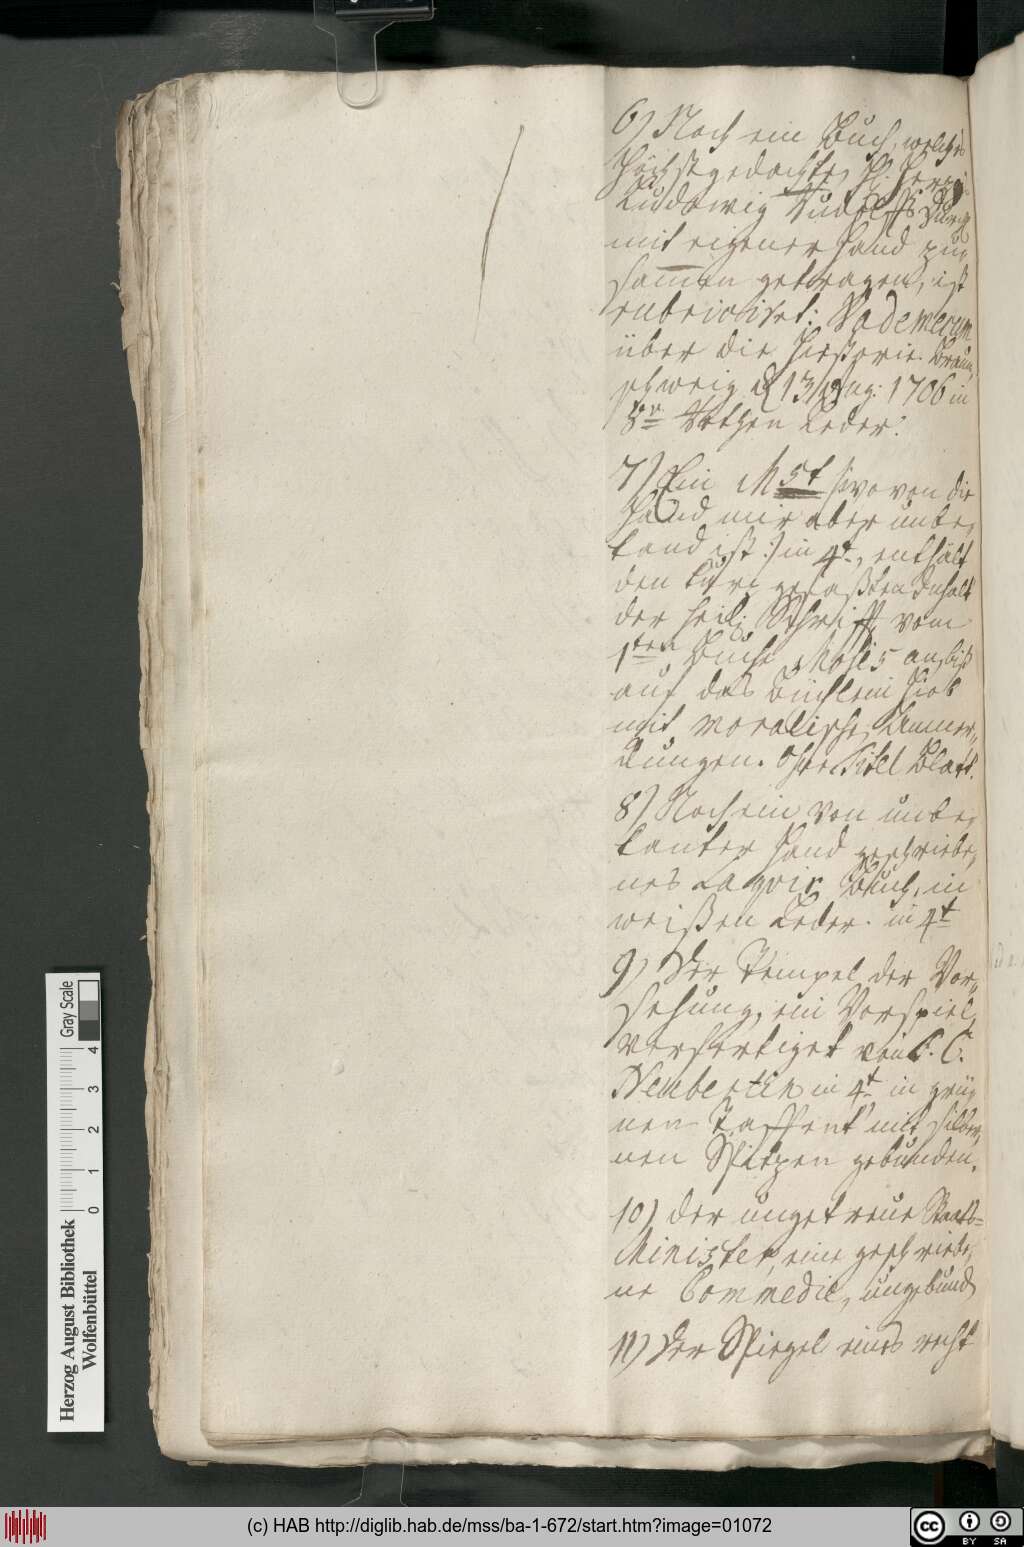 6) Noch ein Buch, welches
Höchstgedachter H. Herzog
Ludewig Rudolffs Durchl
mit eigener Hand zu
sammen getragen, ist
rubriciret: Vademecum
über die Historie. Braun
schweig d 13 Aug: 1706 in
8vo Rothen Leder.
7) Ein Mst so von die
Hand mir aber unbe
kand ist :/ in 4t, enthält
den kurz gefaßten Inhalt
der heil: Schrifft vom
1ten Buche Mosis an, biß
auf das Büchlein Hiob
mit moralische Anmer
kungen. Ohne Titel Blatt.
8) Noch ein von unbe
kanter Hand geschriebe
nes Buch, in
weißen Leder. in 4t
9) Der Tempel der Vor
sehung, ein Vorspiel,
verfertiget von F. C.
Neuberin in 4t in grü
nen Taffent mit silber
nen Spitzen gebunden.
10) Der ungetreue Staats
Minister, eine geschriebe
ne Commedie, ungebund
11) Der Spiegel eines recht
Gray Scale
4
3
2
1
0
Herzog August Bibliothek
Wolfenbüttel
(c) HAB http://diglib.hab.de/mss/ba-1-672/start.htm?image=01072
cc BY SA